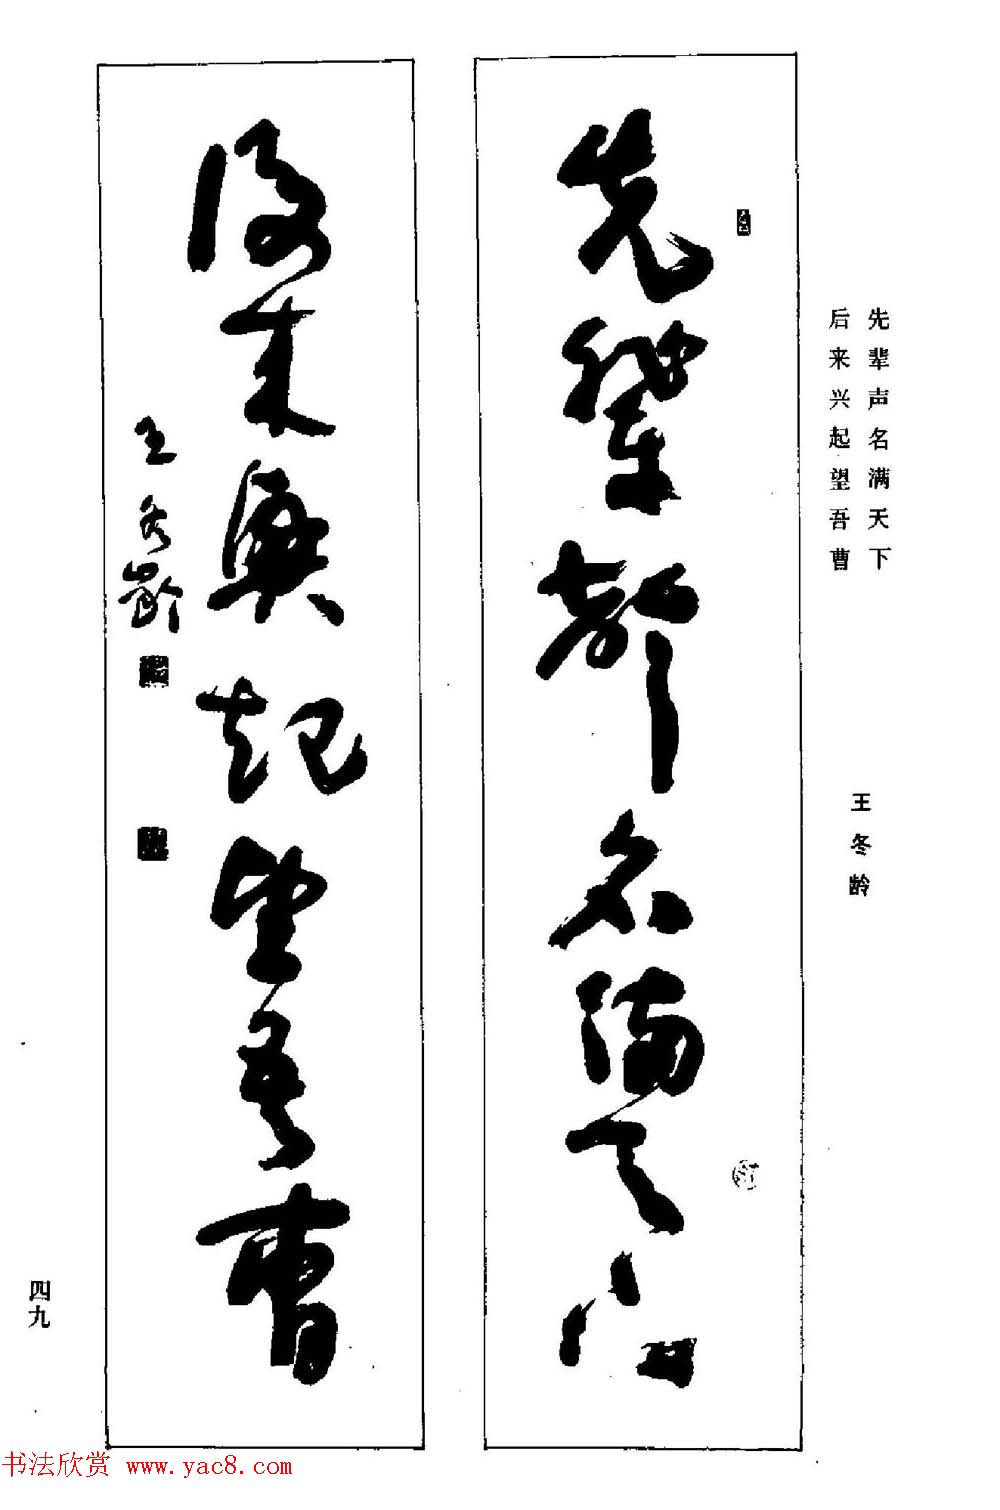 先辈声名满天下
后来兴起望吾曹
王冬龄
先輩聲名滿天下
後来興起望吾曹
王冬齡
四九
书法欣赏 www.yac8.com